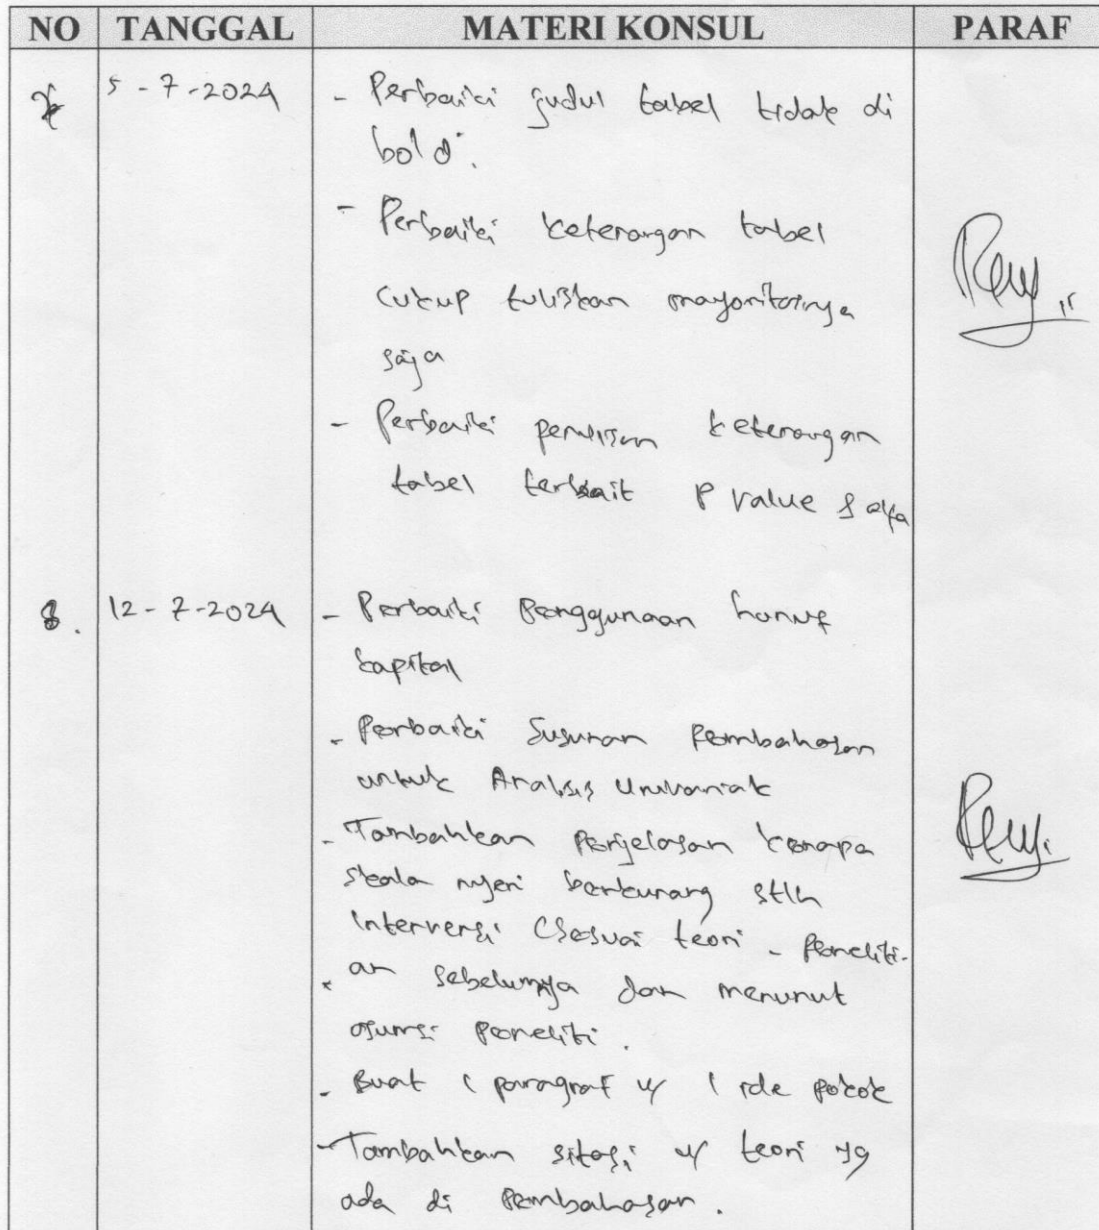 NO TANGGAL MATERI KONSUL PARAF
5 - 7 - 2024 - Perbaiki judul tabel tidak di
bold.
- Perbaiki keterangan tabel
cukup tuliskan mayoritasnya
saja
- Perbaiki penulisan keterangan
tabel terkait P value & alfa
8. 12 - 7 - 2024 - Perbaiki Penggunaan huruf
kapital
- Perbaiki Susunan Pembahasan
untuk Analisis Univariat
- Tambahkan Penjelasan kenapa
skala nyeri berkurang stlh
intervensi (Sesuai teori - Peneliti-
an sebelumnya dan menurut
asumsi Peneliti.
- Buat 1 paragraf u/ 1 ide pokok
- Tambahkan sitasi u/ teori yg
ada di Pembahasan.